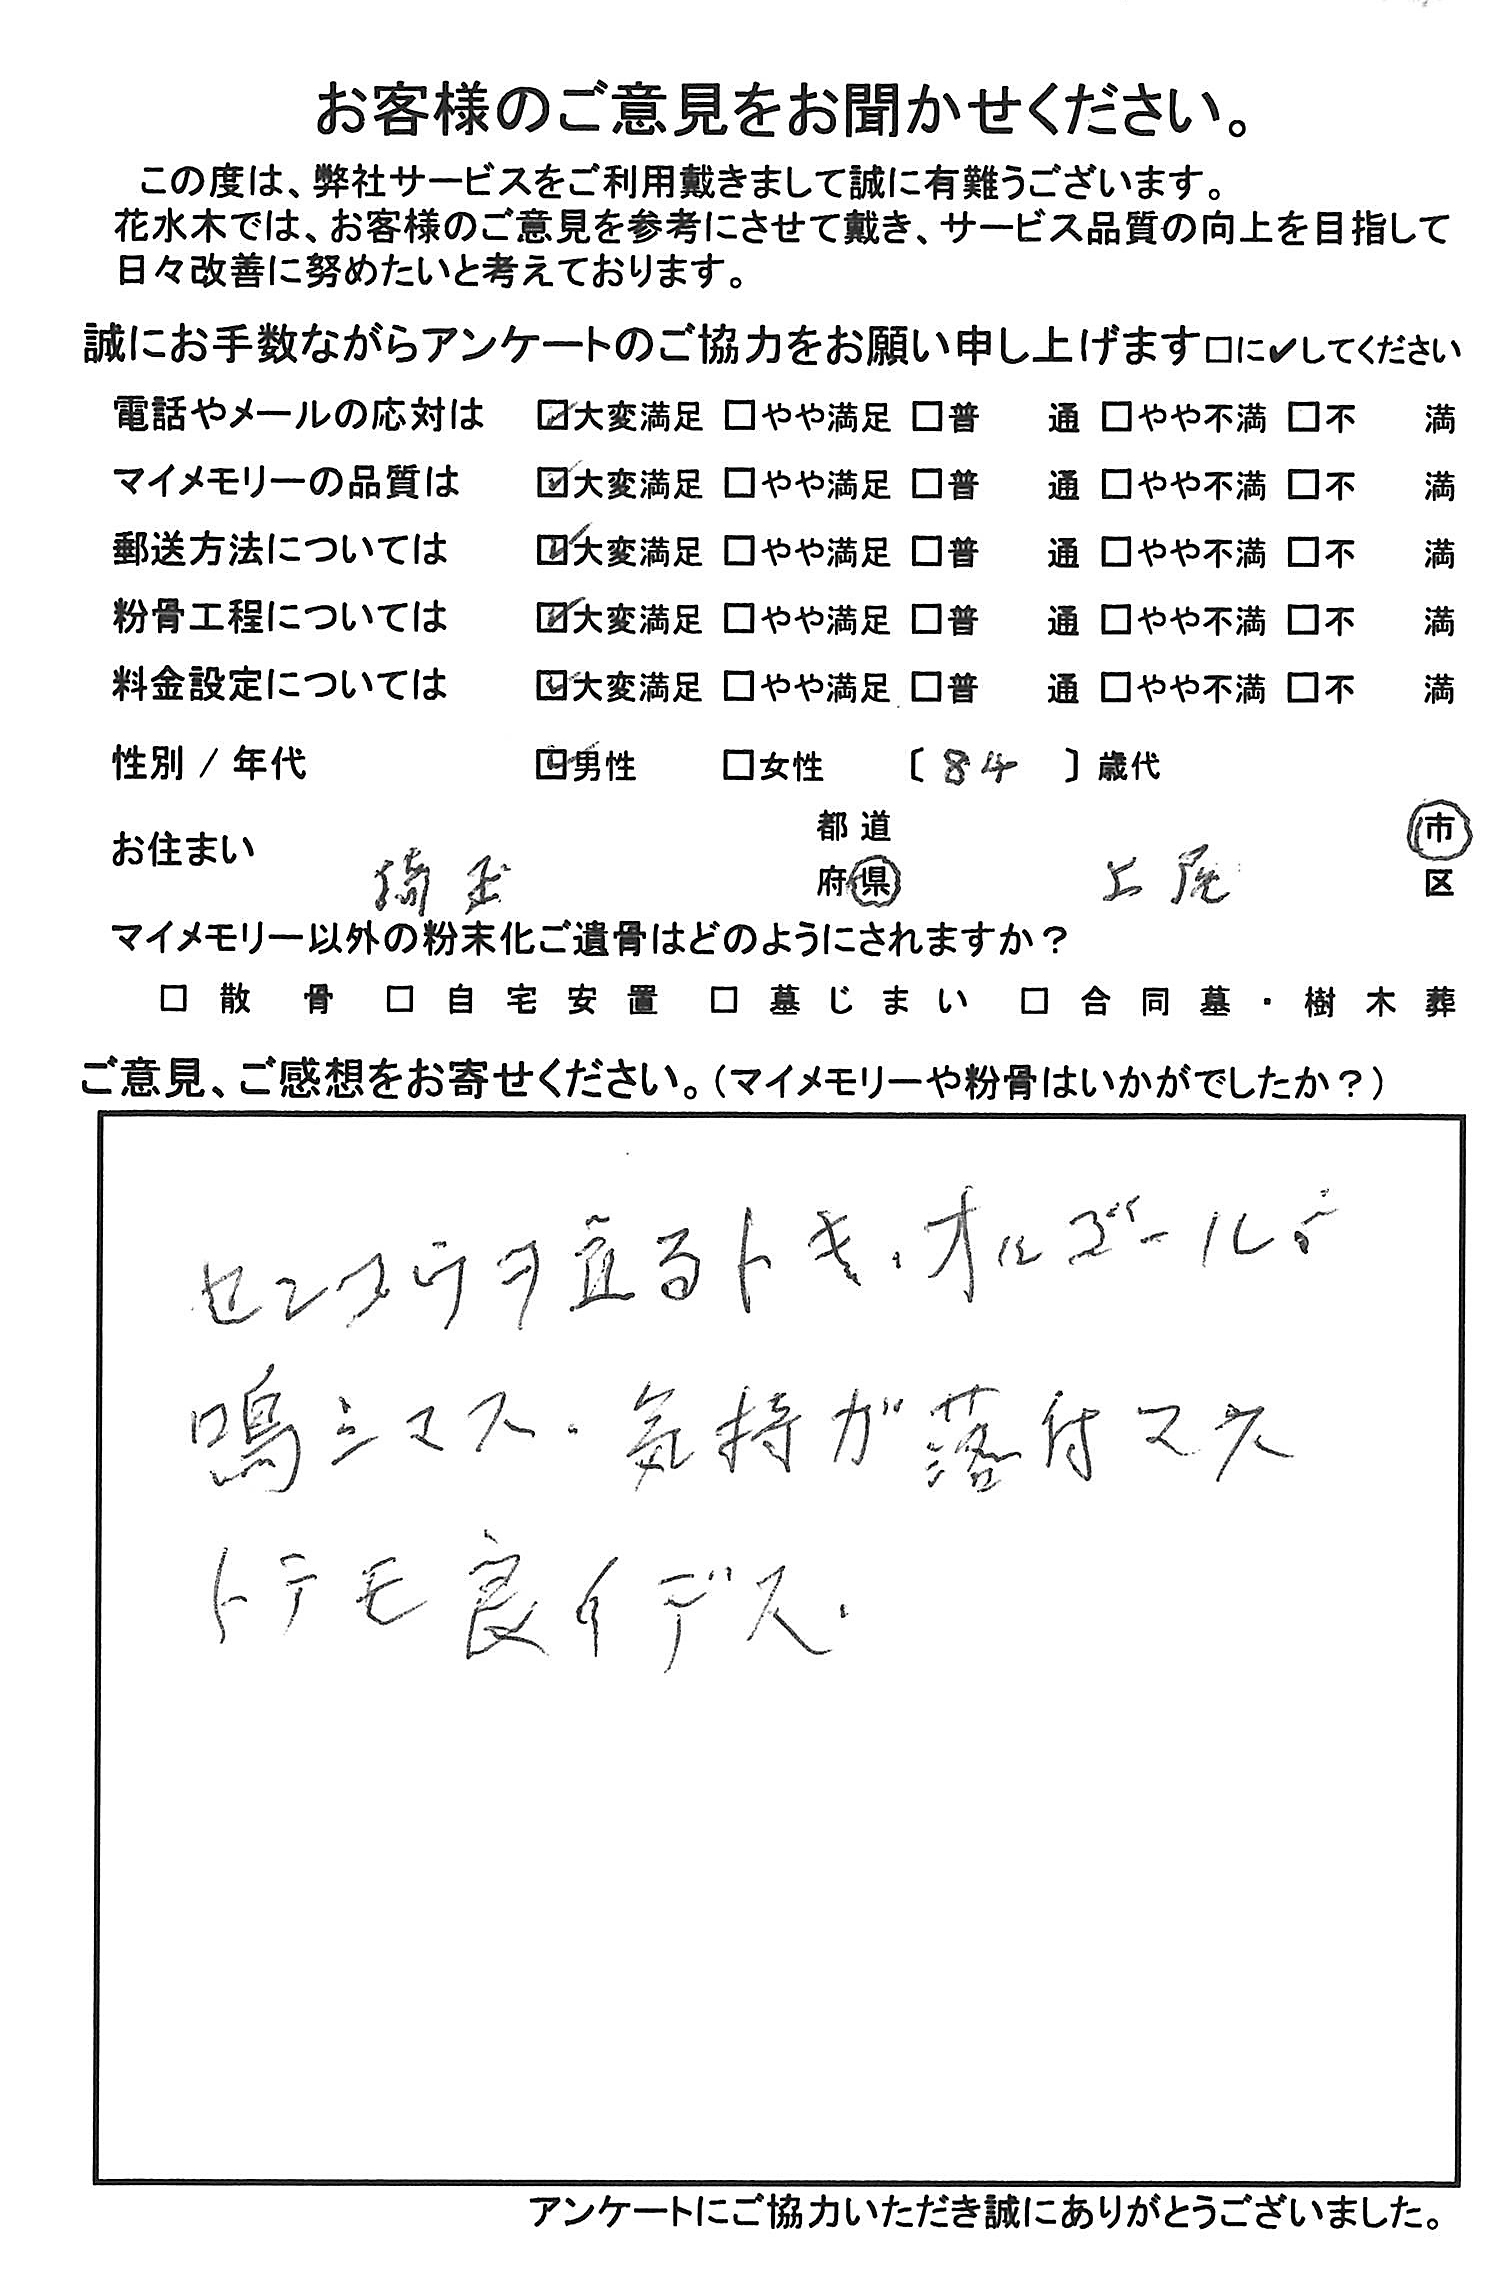 お客様のご意見をお聞かせください。
この度は、弊社サービスをご利用戴きまして誠に有難うございます。
花水木では、お客様のご意見を参考にさせて戴き、サービス品質の向上を目指して
日々改善に努めたいと考えております。
誠にお手数ながらアンケートのご協力をお願い申し上げます□に✔してください
電話やメールの応対は ☑大変満足 □やや満足 □普 通 □やや不満 □不 満
マイメモリーの品質は ☑大変満足 □やや満足 □普 通 □やや不満 □不 満
郵送方法については ☑大変満足 □やや満足 □普 通 □やや不満 □不 満
粉骨工程については ☑大変満足 □やや満足 □普 通 □やや不満 □不 満
料金設定については ☑大変満足 □やや満足 □普 通 □やや不満 □不 満
性別 / 年代 ☑男性 □女性 〔 84 〕歳代
お住まい 埼玉 都道府県 上尾 市区
マイメモリー以外の粉末化ご遺骨はどのようにされますか？
□ 散骨 □ 自宅安置 □ 墓じまい □ 合同墓・樹木葬
ご意見、ご感想をお寄せください。（マイメモリーや粉骨はいかがでしたか？）
センコウヲ立るトキ、オルゴール
鳴シマス. 気持ガ落付マス
トテモ良イデス.
アンケートにご協力いただき誠にありがとうございました。